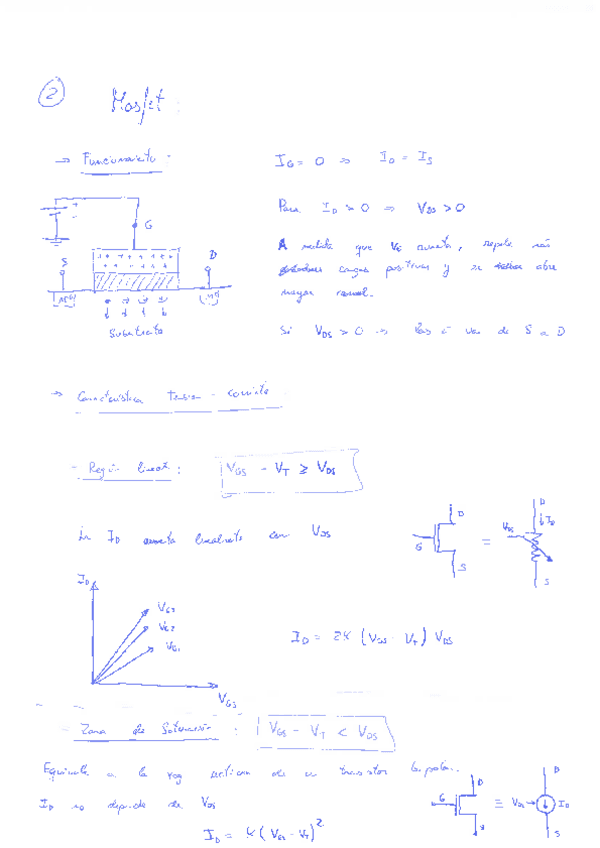 2
Mosfet:
→ Funcionamiento:
I_G = 0 ⇒ I_D = I_S
Para I_D > 0 ⇒ V_DS > 0
A medida que V_G aumenta, repele más
cargas positivas y se abre
mayor canal.
Si V_DS > 0 ⇒ los e⁻ van de S a D
+
-
G
S
D
+ + + + + +
+ + + + + +
Substrato
→ Característica tensión - corriente
- Región lineal: V_GS - V_T ≥ V_DS
La I_D aumenta linealmente con V_DS
G
D
S
=
D
I_D
S
I_D
V_G3
V_G2
V_G1
V_GS
I_D = 2K (V_GS - V_T) V_DS
- Zona de Saturación: V_GS - V_T < V_DS
Equivale a la reg activa de un transistor bipolar.
I_D no depende de V_DS
I_D = K (V_GS - V_T)²
G
D
S
≡
D
I_D
S